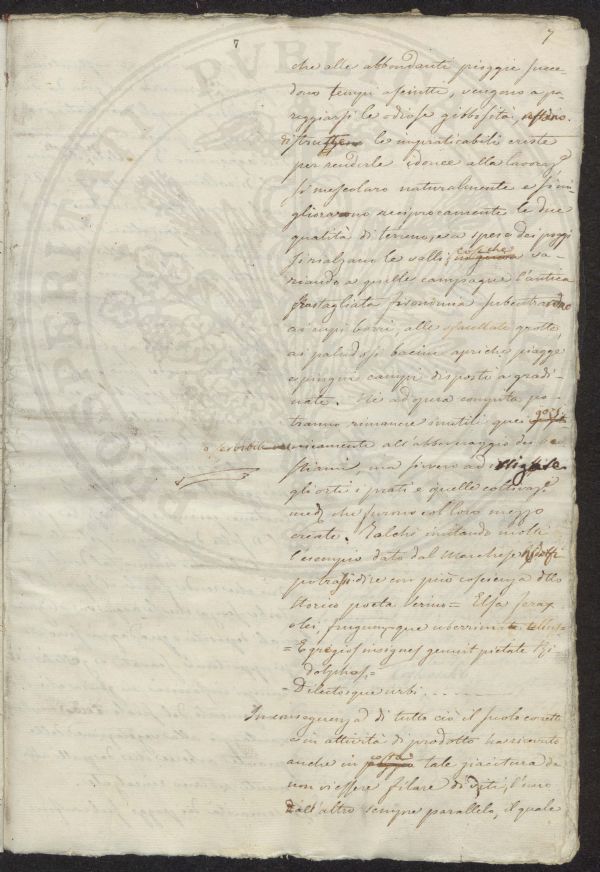 7
7
che alle abbondanti pioggie succe-
dono tempi asciutti, vengono a pa
reggiarsi le odiose gibbosità,
le impraticabili creste
per renderle idonee alla
si mescolaro naturalmente e si mi
gliorarono reciprocamente le due
qualità di terreno, e a spese dei poggi
si rialzano le valli; cosiche va-
riando a quelle campagne l'antica
frastagliata fisonomia subentrarono
ai cupi borri, alle grotte,
ai paludosi bacini apriche piagge
e pingui campi disposti a gradi-
nate. Nè ad opera compiuta po-
tranno rimanere inutili quei gozzi
unicamente all'abbeveraggio dei be
stiami, ma ad
gli orti i prati e quelle
che furono col loro mezzo
create. Talchè imitando molti
l'esempio dato dal Marchese Ridolfi
potrassi dire con più coscienza dello
storico poeta Verino = Elsa ferax
olei, frugumque uberrima tellus
= Egregios insignes genuit pietate Ri
dolphos,=
= Dilectosque urbi . . . . . .
In conseguenza di tutto ciò il suolo corretto
e in attività di prodotto ha ricevuto
anche in costa tale giacitura da
non vi essere filare di viti, l'uno
dall'altro sempre parallelo, il quale